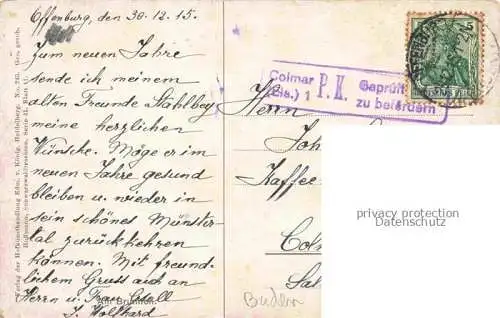 Offenburg, den 30.12.15.
Zum neuen Jahre
sende ich meinem
alten Freunde Stählbey
meine herzlichen
Wünsche. Möge er im
neuen Jahre gesund
bleiben und wieder in
sein schönes Münster-
tal zurückkehren
können. Mit freund-
lichem Gruss auch an
Herrn u. Frau
J. Wolfhard
Am Brunnen.
Verlag der Hofkunsthandlung Edm. v. König, Heidelberg. No. 245. Ges. gesch.
Colmar P.K. Geprüft
(Els.) 1 zu befördern
5
Herrn
Joh
Kaffee
Colm
privacy protection
Datenschutz
Baden